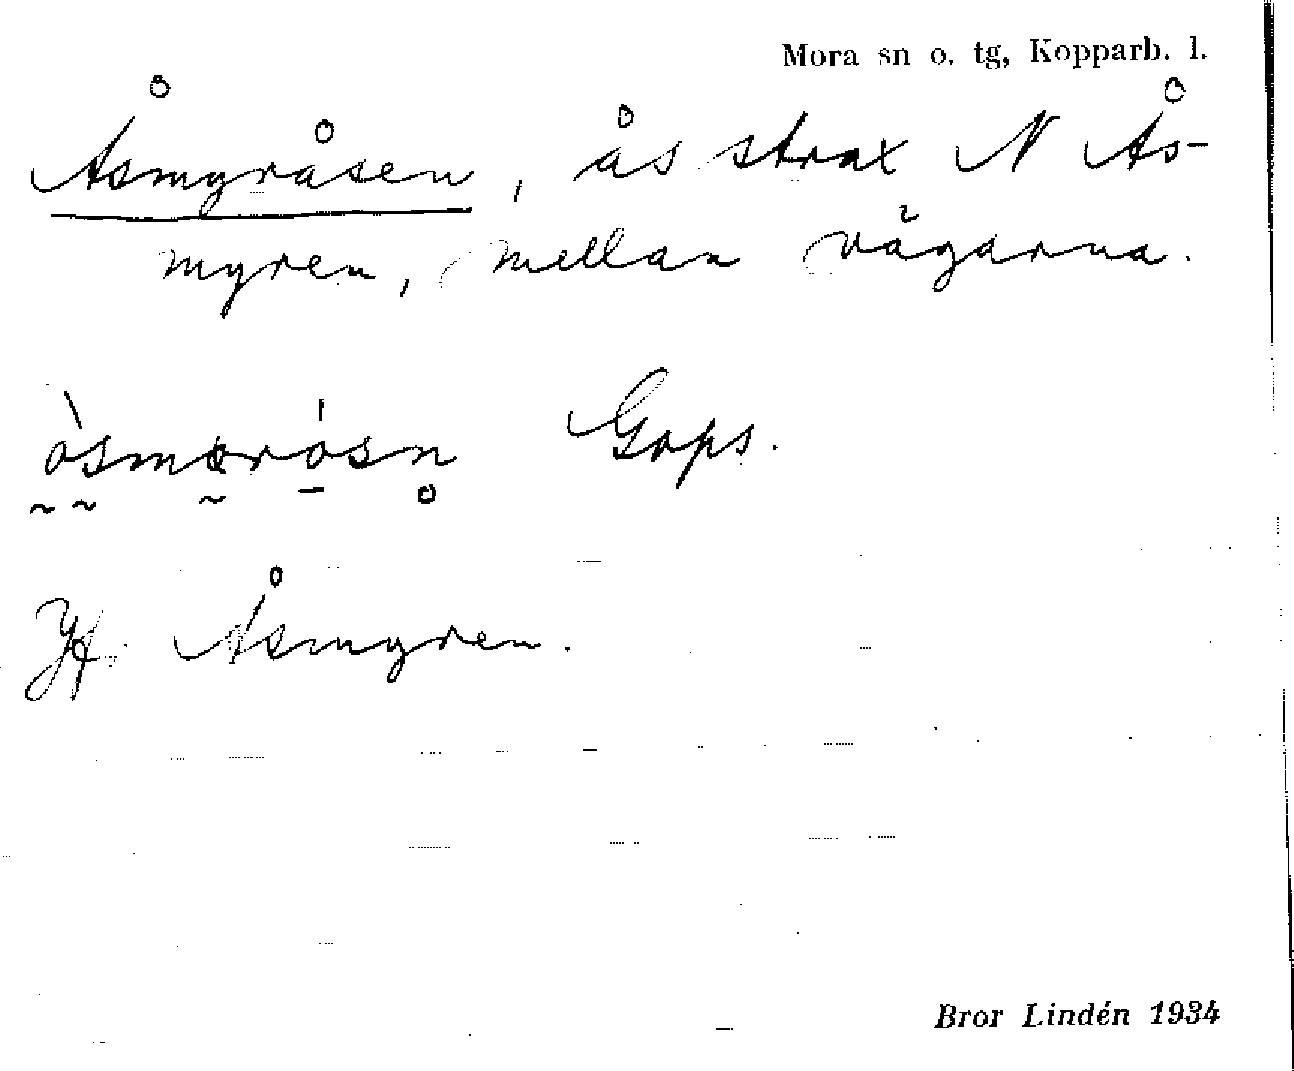 Mora sn o. tg, Kopparb. l.
Åsmyråsen, ås strax N Ås-
myren, mellan vägarna.
Gops.
Jf. Åsmyren.
Bror Lindén 1934